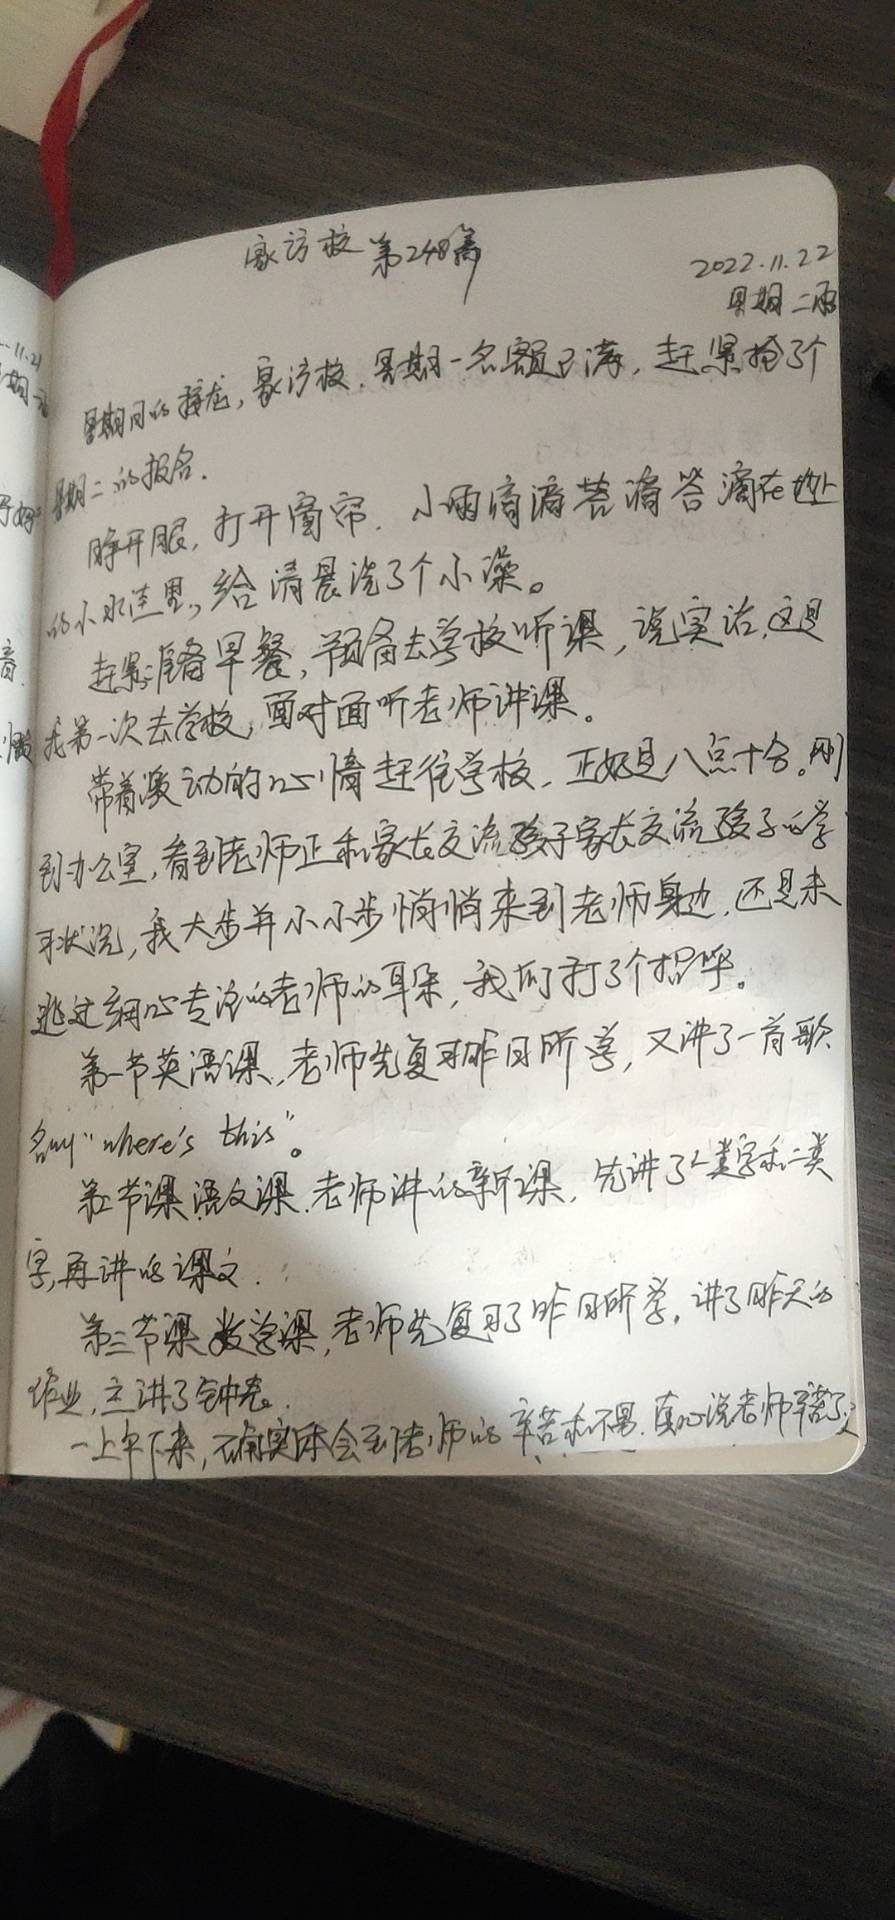 家访校 第248篇
2022.11.22
星期二雨
星期日的接龙，家访校，星期一名额已满，赶紧抢了个
星期二的报名.
睁开眼，打开窗帘. 小雨滴滴答滴答滴在地上
的小水洼里，给清晨洗了个小澡。
赶紧准备早餐，预备去学校听课，说实话，这是
我第一次去学校，面对面听老师讲课。
带着激动的心情赶往学校. 正好是八点十分。刚
到办公室，看到老师正和家长交流孩子家长交流孩子的学
习状况，我大步并小小步悄悄来到老师身边. 还是未
逃过细心专注的老师的耳朵，我们打了个招呼。
第一节英语课，老师先复习昨日所学，又讲了一首歌
名叫"where's this"。
第二节课语文课. 老师讲的新课，先讲了一类字和二类
字，再讲的课文.
第三节课数学课，老师先复习了昨日所学，讲了昨天的
作业，主讲了钟表.
一上午下来，确实体会到老师的辛苦和不易. 真心说老师辛苦了
11.21